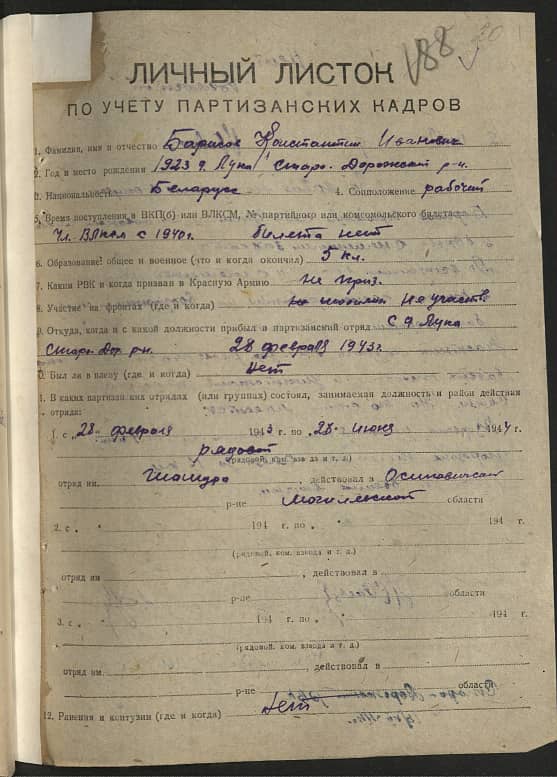 188
ЛИЧНЫЙ ЛИСТОК
ПО УЧЕТУ ПАРТИЗАНСКИХ КАДРОВ
1. Фамилия, имя и отчество Барисов Константин Иванович
2. Год и место рождения 1923 д. Лука Старо-Дорожский р-н.
3. Национальность Беларусс 4. Соцположение рабочий
5. Время поступления в ВКП(б) или ВЛКСМ, № партийного или комсомольского билета
Чл. ВЛКСМ с 1940г. билета нет
6. Образование: общее и военное (что и когда окончил) 5 кл.
7. Каким РВК и когда призван в Красную Армию не приз.
8. Участие на фронтах (где и когда) не участв.
9. Откуда, когда и с какой должности прибыл в партизанский отряд с д. Лука
Старо. Дор. р-н. 28 февраля 1943г.
0. Был ли в плену (где и когда) Нет
1. В каких партизанских отрядах (или группах) состоял, занимаемая должность и район действия
отряда:
1. с „28" февраля 1943 г. по „ июня 1944 г.
рядовой
(рядовой, ком. взвода и т. д.)
отряд им. , действовал в Осиповичском
р-не Могилевской области
2. с „ 194 г. по „ 194 г.
(рядовой, ком. взвода и т. д.)
отряд им , действовал в
р-не области
3. с „ 194 г. по „ 194 г.
(рядовой, ком. взвода и т. д.)
отряд им. , действовал в
р-не области
12. Ранения и контузии (где и когда) Нет